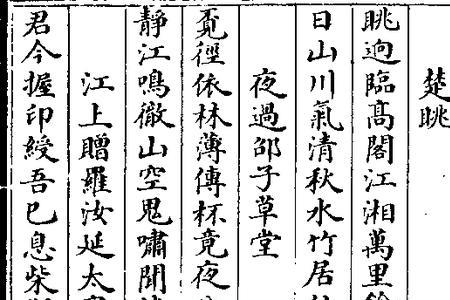 楚眺
眺迥臨高閣江湘萬里
日山川氣清秋水竹居
夜過邵子草堂
覔徑依林薄傳杯竟夜
靜江鳴徹山空鬼嘯聞
江上贈羅汝延太
君今握印綬吾已息柴